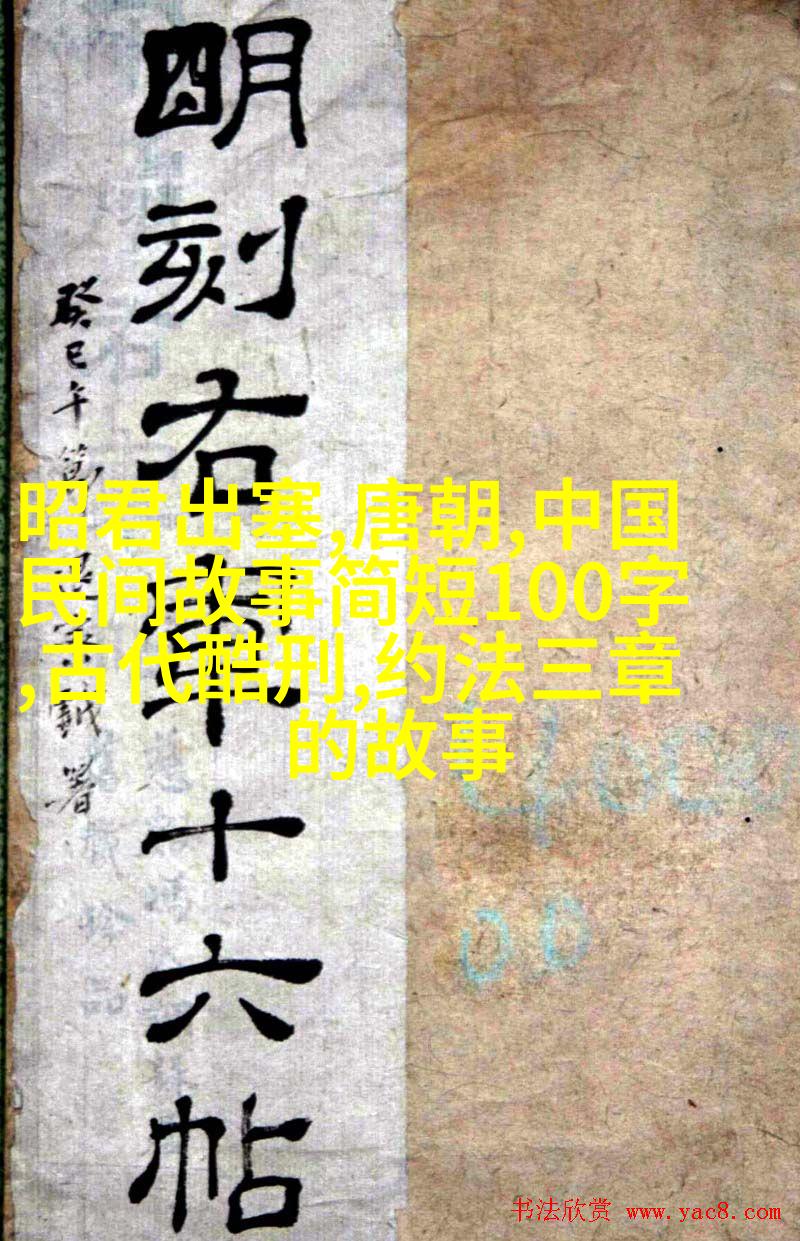 朙刻右軍十六帖
癸巳午
署
昭君出塞,唐朝,中国
民间故事简短100字
,古代酷刑,约法三章
的故事
书法欣赏 www.yac8.com